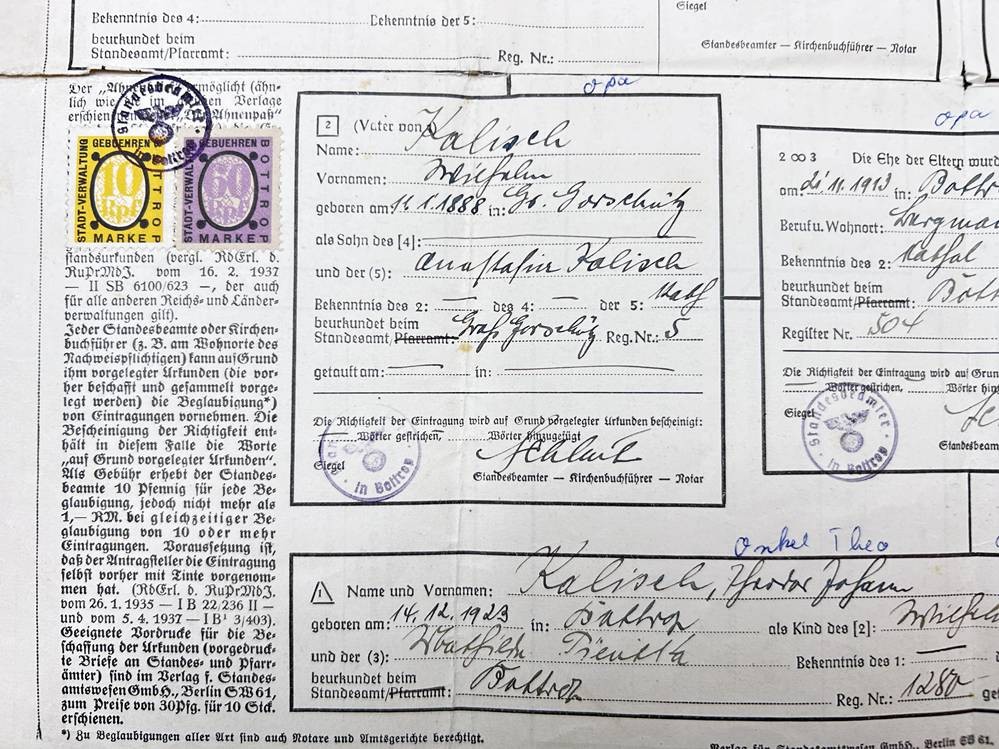 Bekenntnis des 4: Bekenntnis der 5:
beurkundet beim
Standesamt/Pfarramt: Reg. Nr.:
Siegel
Standesbeamter — Kirchenbuchführer — Notar
Der „Ahnen ermöglicht (ähn-
lich wie im Verlage
erschien Ahnenpaß"
STADT-VERWALTUNG GEBUEHREN BOTTROP MARKE 10 Rpf
STADT-VERWALTUNG GEBUEHREN BOTTROP MARKE 60 Rpf
Standesbeamter in Bottrop
standsurkunden (vergl. RdErl. d.
RuPrMdJ. vom 16. 2. 1937
— II SB 6100/623 —, der auch
für alle anderen Reichs- und Länder-
verwaltungen gilt).
Jeder Standesbeamte oder Kirchen-
buchführer (z. B. am Wohnorte des
Nachweispflichtigen) kann auf Grund
ihm vorgelegter Urkunden (die vor-
her beschafft und gesammelt vorge-
legt werden) die Beglaubigung*)
von Eintragungen vornehmen. Die
Bescheinigung der Richtigkeit ent-
hält in diesem Falle die Worte
„auf Grund vorgelegter Urkunden".
Als Gebühr erhebt der Standes-
beamte 10 Pfennig für jede Be-
glaubigung, jedoch nicht mehr als
1,— RM. bei gleichzeitiger Be-
glaubigung von 10 oder mehr
Eintragungen. Voraussetzung ist,
daß der Antragsteller die Eintragung
selbst vorher mit Tinte vorgenom-
men hat. (RdErl. d. RuPrMdJ.
vom 26. 1. 1935 — I B 22/236 II —
und vom 5. 4. 1937 — I B¹ 3/403).
Geeignete Vordrucke für die Be-
schaffung der Urkunden (vorgedruck-
te Briefe an Standes- und Pfarr-
ämter) sind im Verlag f. Standes-
amtswesen GmbH., Berlin SW 61,
zum Preise von 30Pfg. für 10 Stck.
erschienen.
*) Zu Beglaubigungen aller Art sind auch Notare und Amtsgerichte berechtigt.
Opa
2 (Vater von
Name: Kalisch
Vornamen: Wilhelm
geboren am: 11.1.1888 in: Gr. Gorschütz
als Sohn des [4]:
und der (5): Anastasia Kalisch
Bekenntnis des 2: — des 4: — der 5: kath
beurkundet beim
Standesamt/Pfarramt: Groß Gorschütz Reg. Nr.: 5
getauft am: — in: —
Die Richtigkeit der Eintragung wird auf Grund vorgelegter Urkunden bescheinigt:
— Wörter gestrichen, Wörter hinzugefügt
Siegel
in Bottrop
Standesbeamter — Kirchenbuchführer — Notar
Opa
2 ∞ 3 Die Ehe der Eltern wurd
am: 21.11.1913 in: Bottr
Beruf u. Wohnort: Bergman
Bekenntnis des 2: kathol
beurkundet beim
Standesamt/Pfarramt: Bott
Register Nr. 504
Die Richtigkeit der Eintragung wird auf Grun
— Wörter gestrichen, Wörter hinz
Siegel
Standesbeamter in Bottrop
Standesbeamt
Onkel Theo
1 Name und Vornamen: Kalisch, Theodor Johann
geboren am: 14.12.1923 in: Bottrop als Kind des [2]: Wilhelm
und der (3): Mathilde Bekenntnis des 1: —
beurkundet beim
Standesamt/Pfarramt: Bottrop Reg. Nr.: 1280 ge
Verlag für Standesamtswesen GmbH., Berlin SW 61.